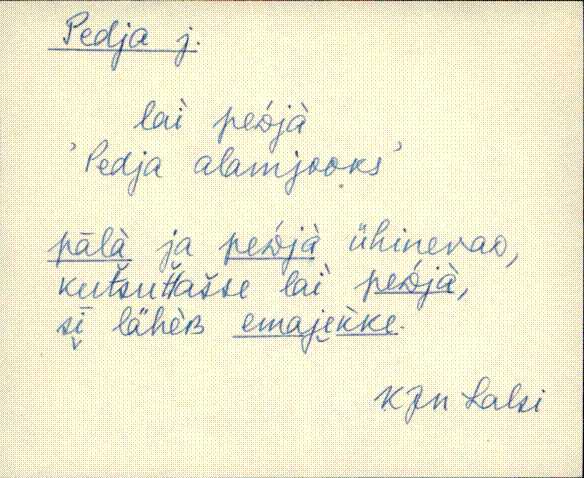 Pedja j.
lai peᴅ́jà
'Pedja alamjooks'
pālà ja peᴅ́jà ühinevaᴅ,
kutsuttasse lai peᴅ́jà,
sī lähèʙ emajekke.
KJn Lalsi